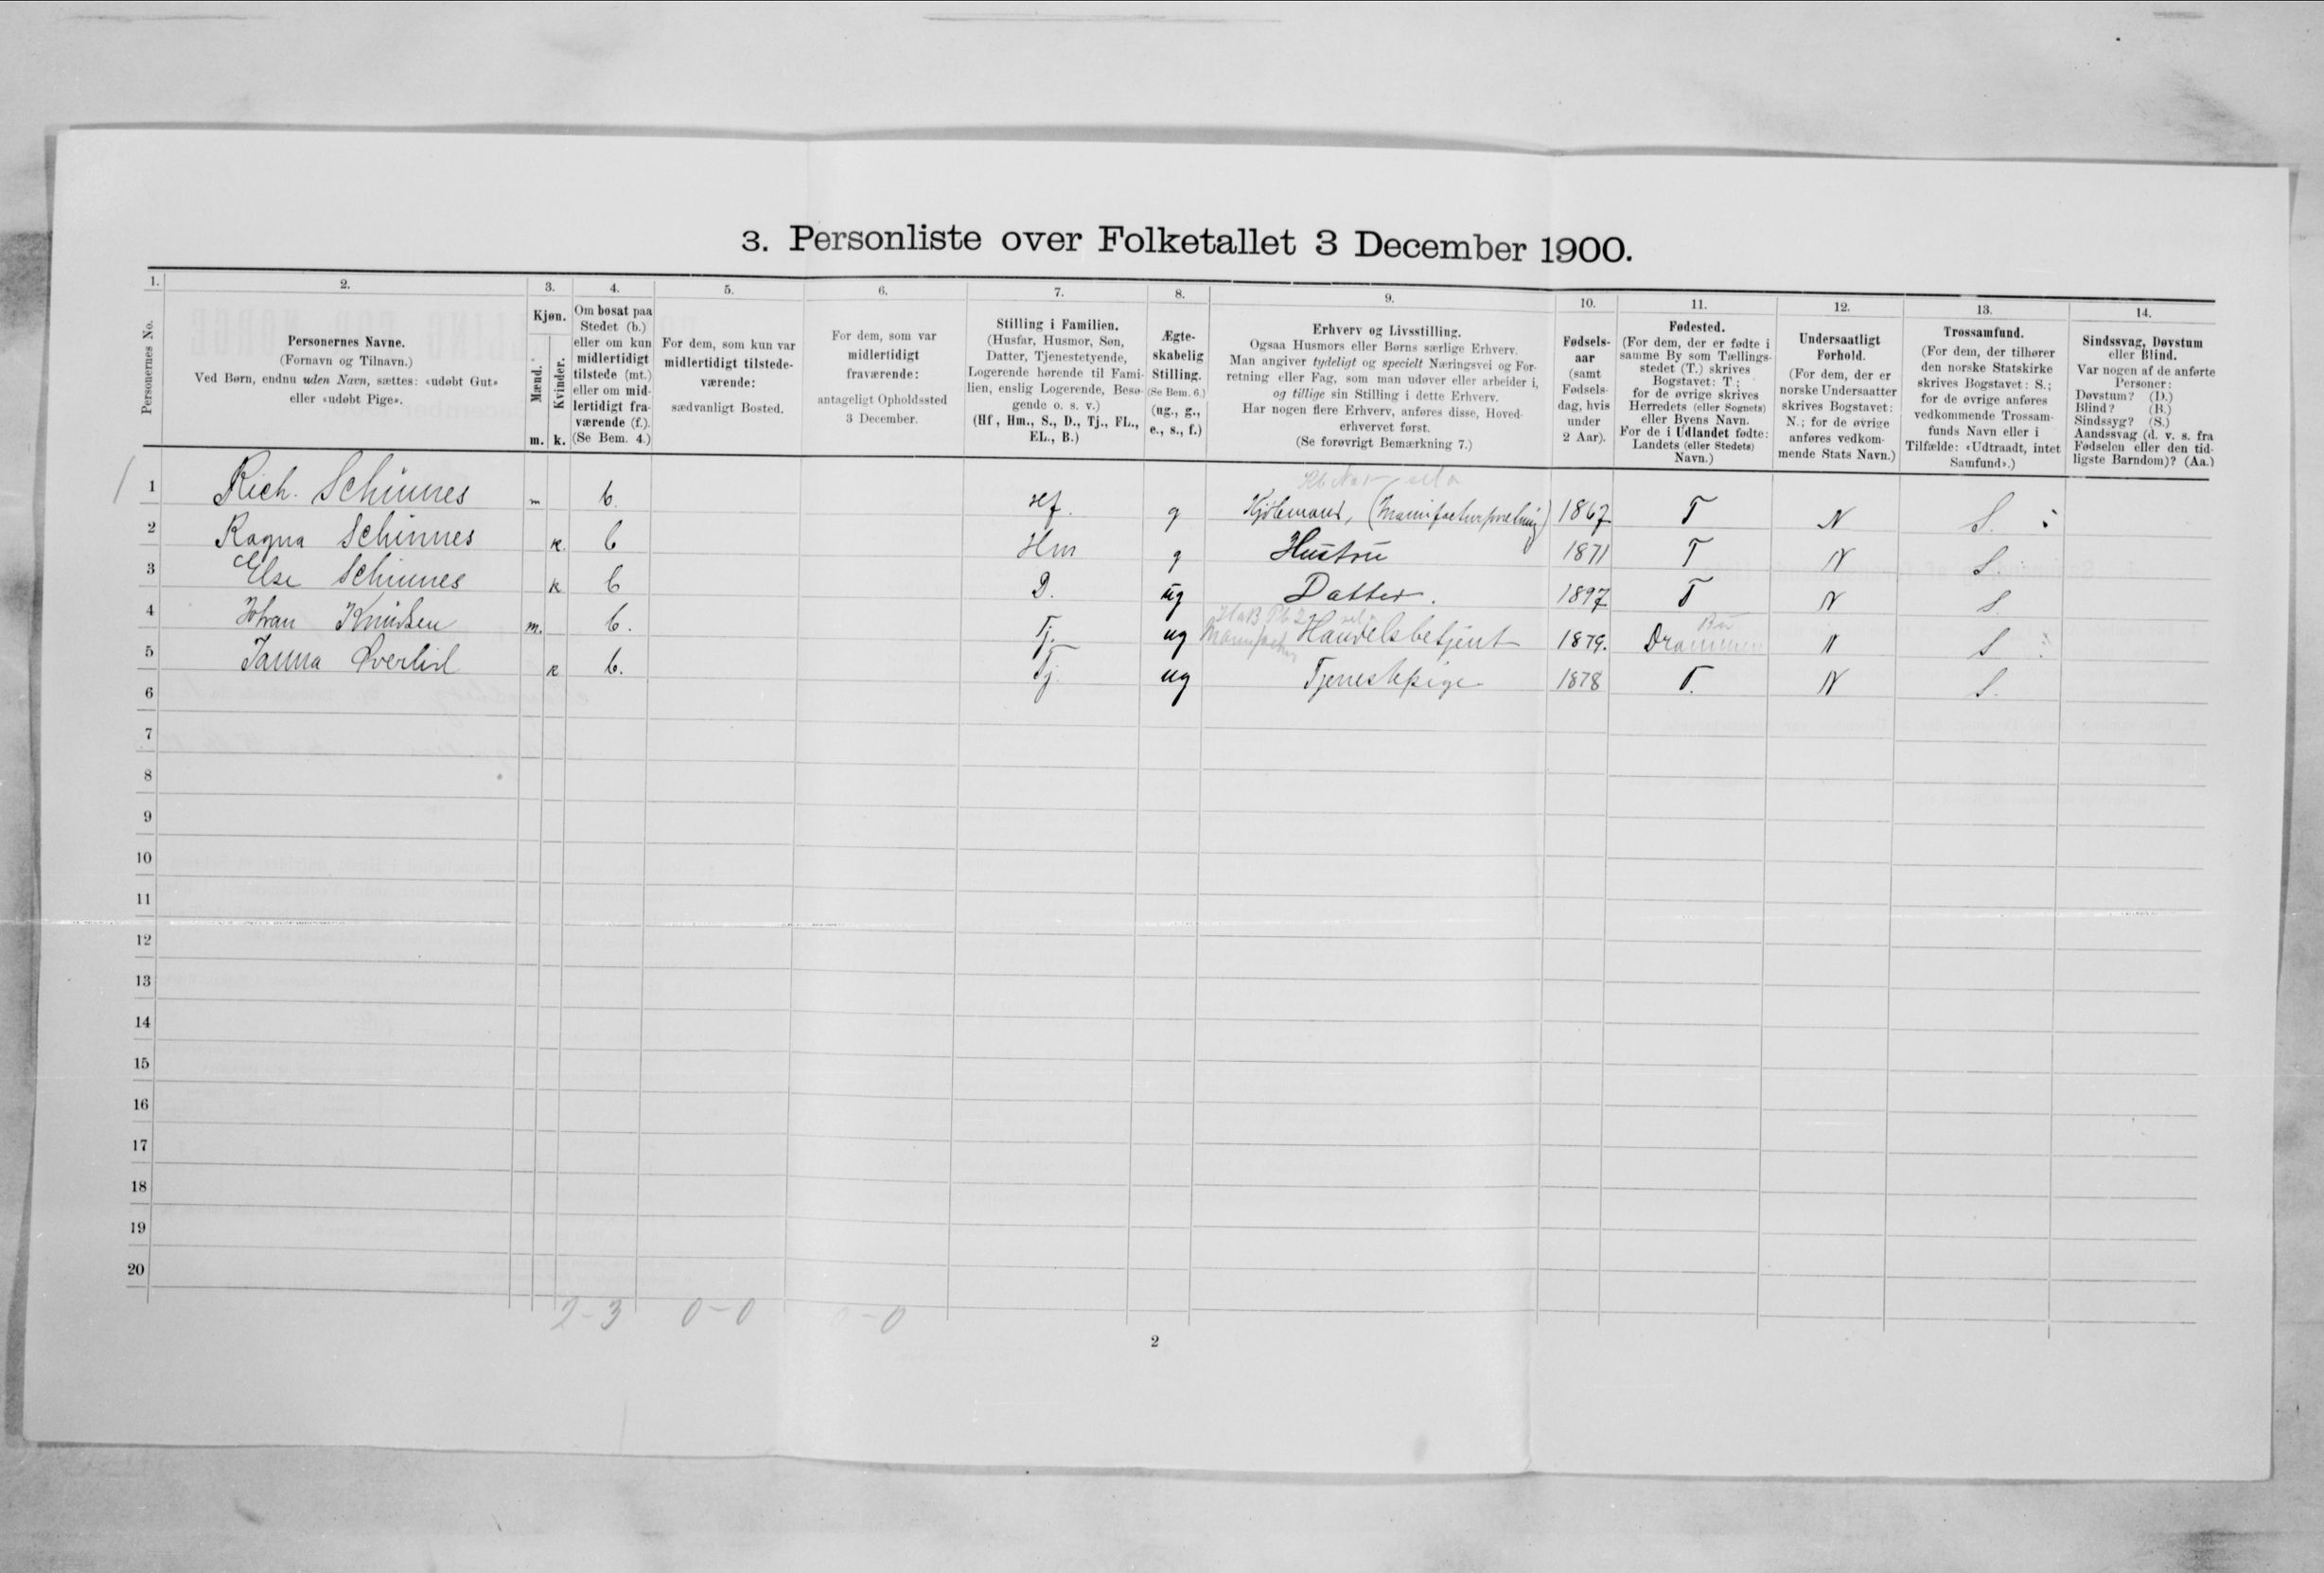 3. Personliste over Folketallet 3 December 1900.
1. 2. 3. 4. 5. 6. 7. 8. 9. 10. 11. 12. 13. 14.
Personernes No.
Personernes Navne.
(Fornavn og Tilnavn.)
Ved Børn, endnu uden Navn, sættes: «udøbt Gut»
eller «udøbt Pige».
Kjøn.
Mænd.
Kvinder.
m. k.
Om bosat paa
Stedet (b.)
eller om kun
midlertidigt
tilstede (mt.)
eller om mid-
lertidigt fra-
værende (f.).
(Se Bem. 4.)
For dem, som kun var
midlertidigt tilstede-
værende:
sædvanligt Bosted.
For dem, som var
midlertidigt
fraværende:
antageligt Opholdssted
3 December.
Stilling i Familien.
(Husfar, Husmor, Søn,
Datter, Tjenestetyende,
Logerende hørende til Fami-
lien, enslig Logerende, Besø-
gende o. s. v.)
(Hf, Hm., S., D., Tj., FL.,
EL., B.)
Ægte-
skabelig
Stilling.
(Se Bem. 6.)
(ug., g.,
e., s., f.)
Erhverv og Livsstilling.
Ogsaa Husmors eller Børns særlige Erhverv.
Man angiver tydeligt og specielt Næringsvei og For-
retning eller Fag, som man udøver eller arbeider i,
og tillige sin Stilling i dette Erhverv.
Har nogen flere Erhverv, anføres disse, Hoved-
erhvervet først.
(Se forøvrigt Bemærkning 7.)
Fødsels-
aar
(samt
Fødsels-
dag, hvis
under
2 Aar).
Fødested.
(For dem, der er fødte i
samme By som Tællings-
stedet (T.) skrives
Bogstavet: T;
for de øvrige skrives
Herredets (eller Sognets)
eller Byens Navn.
For de i Udlandet fødte:
Landets (eller Stedets)
Navn.)
Undersaatligt
Forhold.
(For dem, der er
norske Undersaatter
skrives Bogstavet:
N.; for de øvrige
anføres vedkom-
mende Stats Navn.)
Trossamfund.
(For dem, der tilhører
den norske Statskirke
skrives Bogstavet: S.;
for de øvrige anføres
vedkommende Trossam-
funds Navn eller i
Tilfælde: «Udtraadt, intet
Samfund».)
Sindssvag, Døvstum
eller Blind.
Var nogen af de anførte
Personer:
Døvstum? (D.)
Blind? (B.)
Sindssyg? (S.)
Aandssvag (d. v. s. fra
Fødselen eller den tid-
ligste Barndom)? (Aa.)
1 Rich. Schinnes m b. Hf. g Kjøbmand, (Manufacturforretning) 1867 T N S.
2 Ragna Schinnes k. b Hm g Hustru 1871 T N S.
3 Else Schinnes k b D. ug Datter. 1897 T N S.
4 Johan Knudsen m. b. Tj. ug Manufactur Handelsbetjent 1879. Drammen N S
5 Janna Øverlid k b. Tj. ug Tjenestepige 1878 T. N S.
6
7
8
9
10
11
12
13
14
15
16
17
18
19
20
2-3 0-0 0-0
2